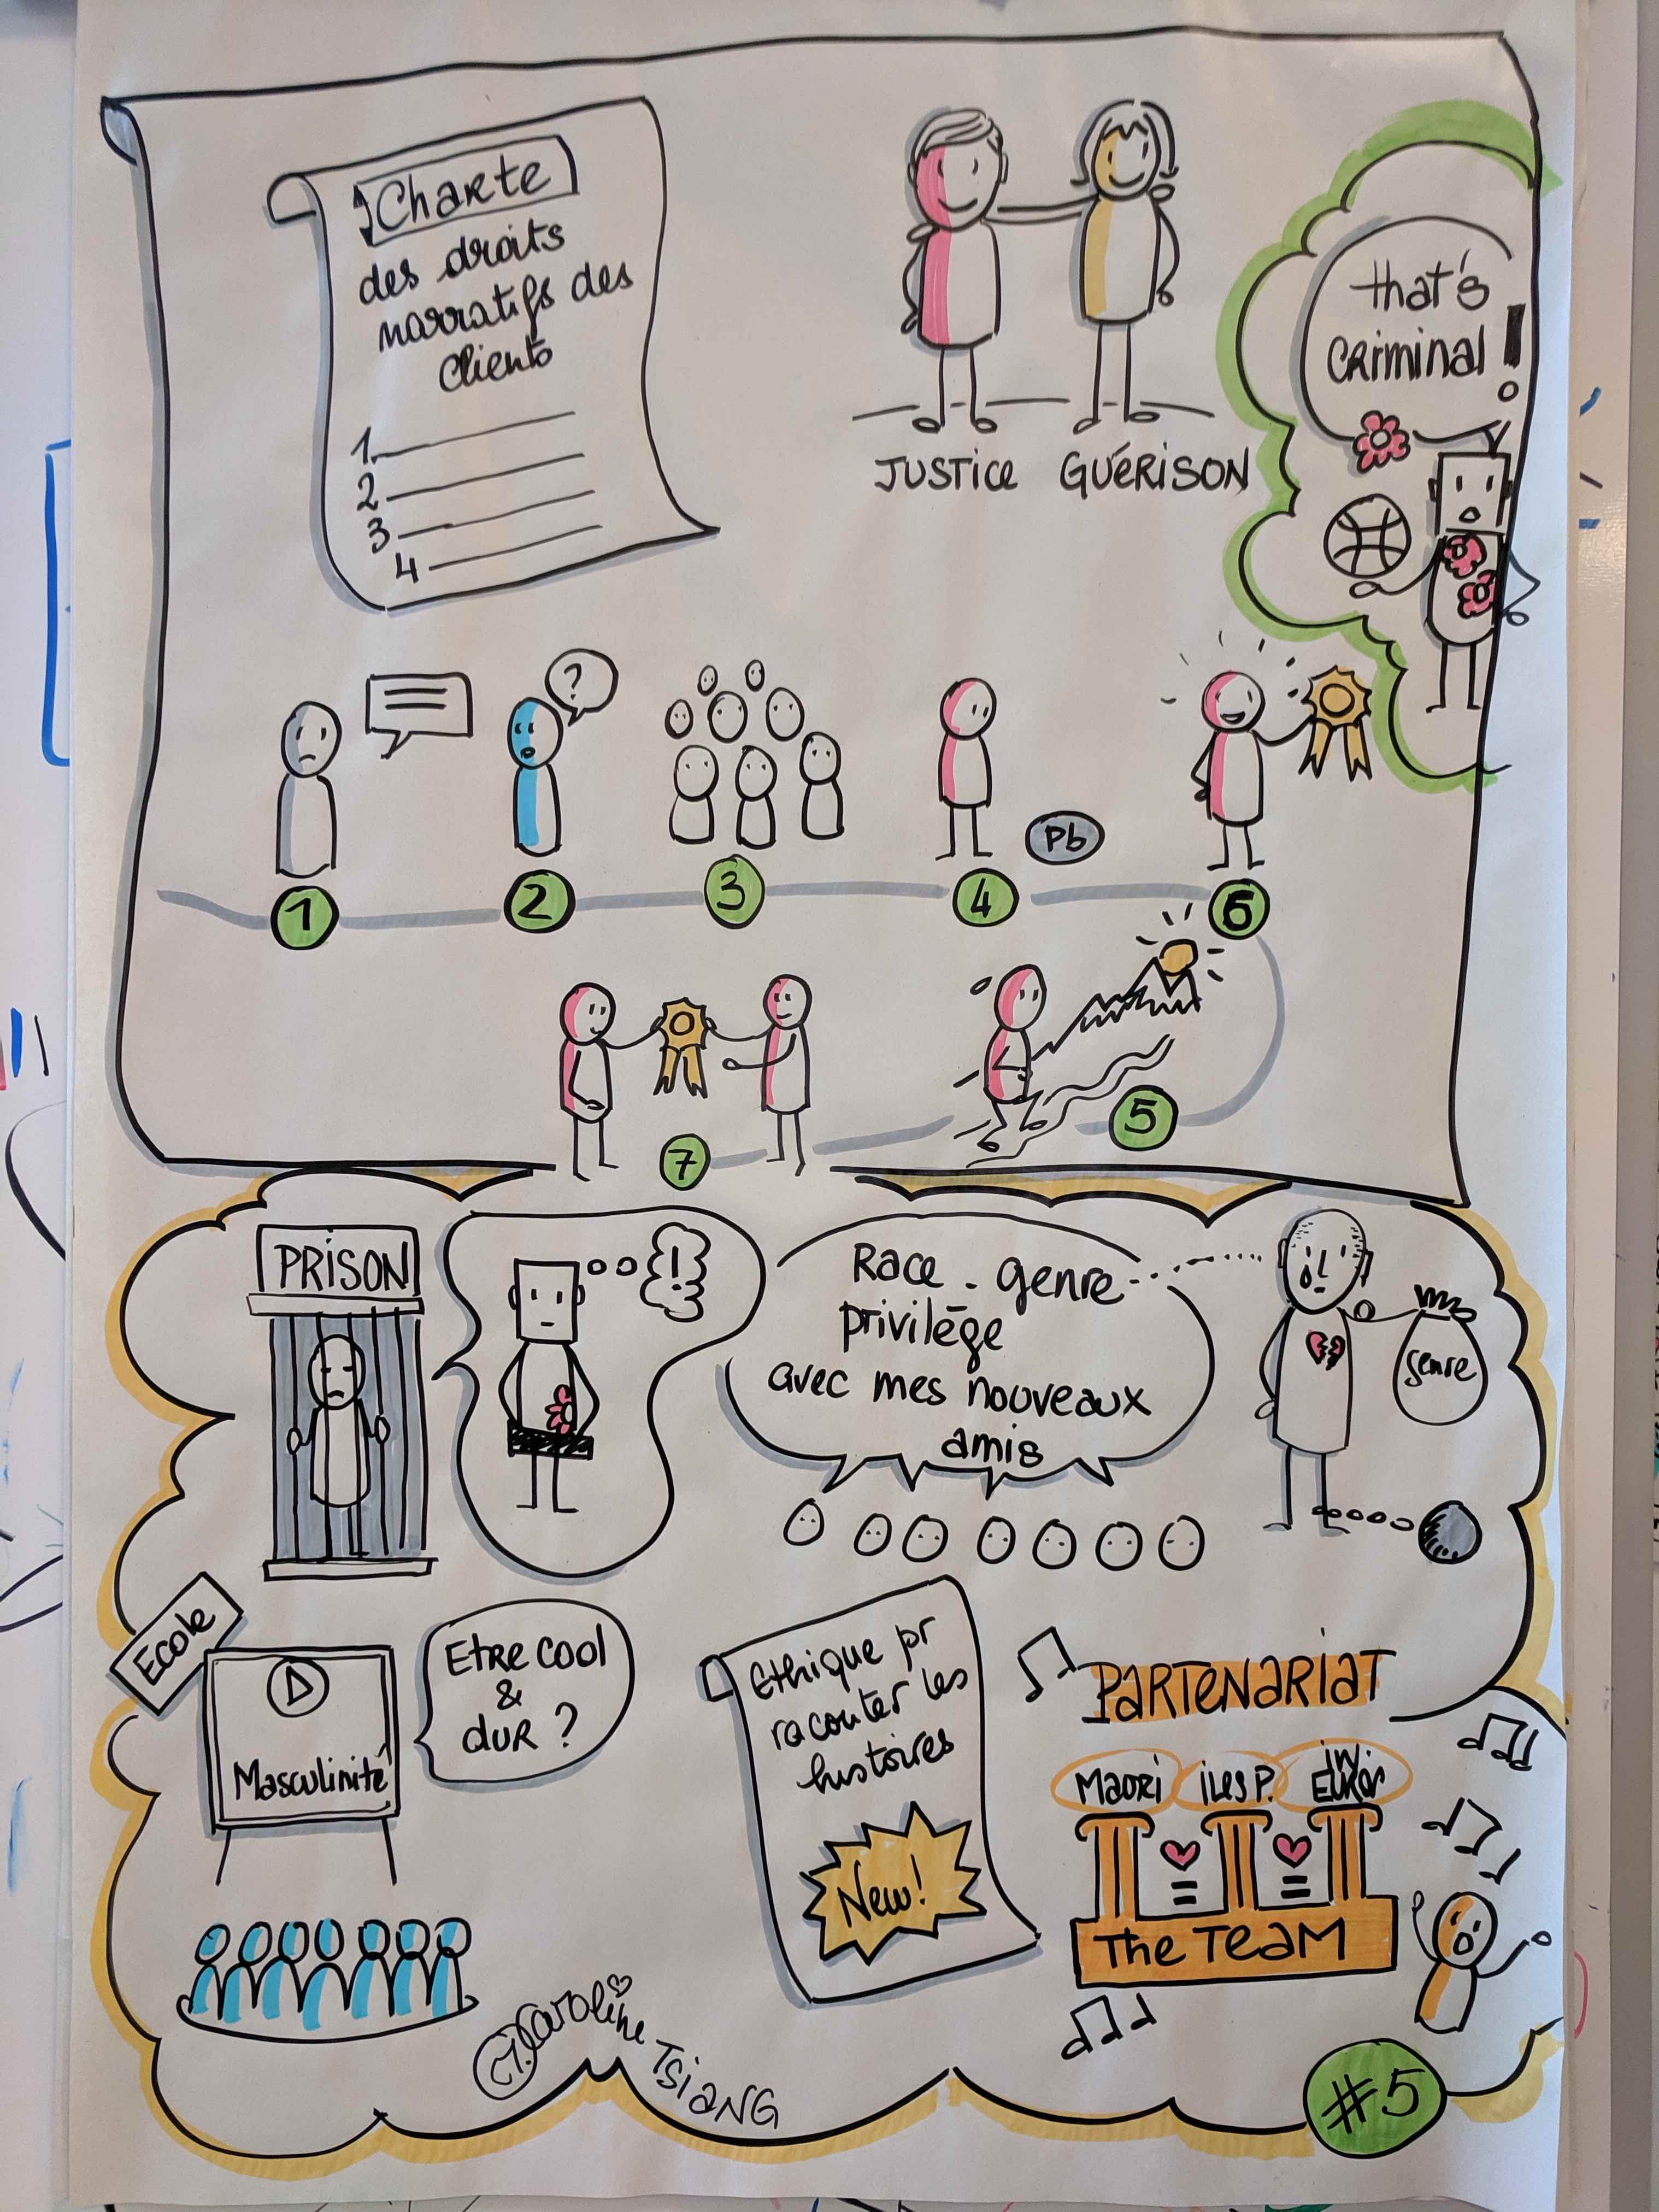 Charte
des droits
narratifs des
clients
1.
2
3
4
JUSTICE GUÉRISON
that's
criminal !
?
Pb
1
2
3
4
6
5
7
PRISON
!
Race - genre
privilège
avec mes nouveaux
amis
genre
Ecole
Masculinité
Etre cool
&
dur ?
Ethique pr
raconter les
histoires
New!
PARTENARIAT
Maori iles P.
The Team
Caroline
TSIANG
#5